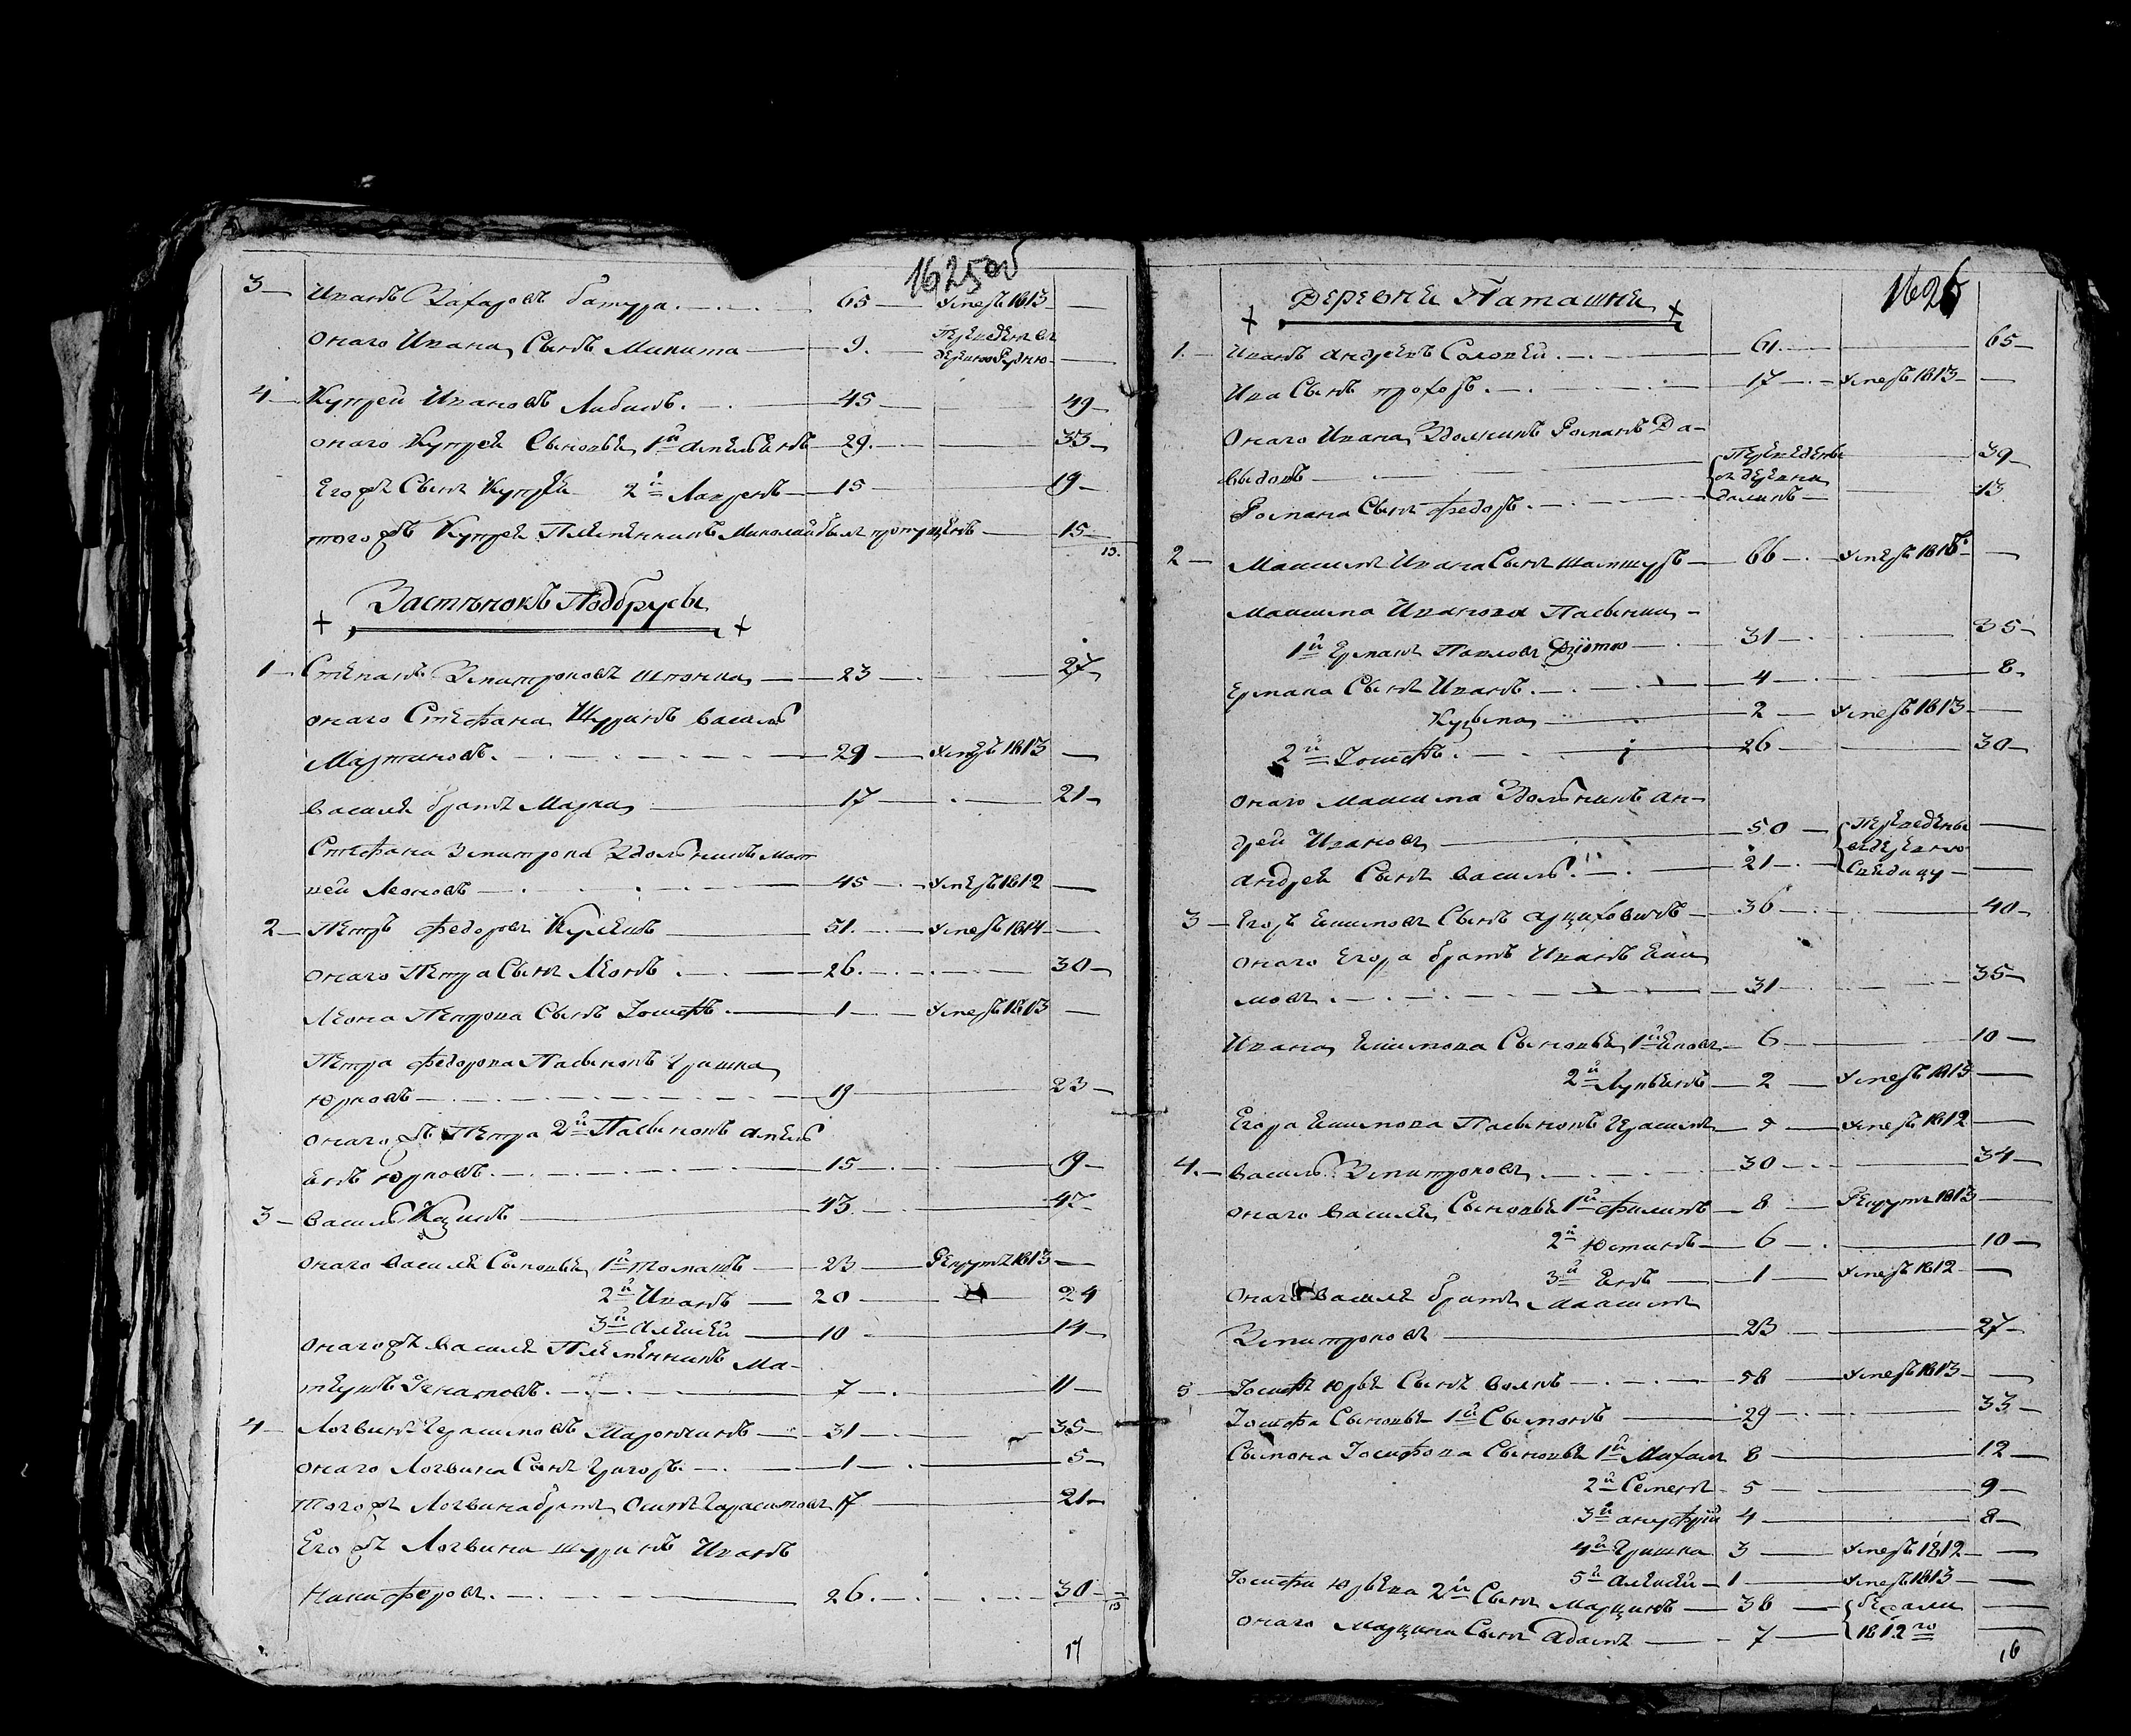 1625об
3 Иванъ Захаровъ батура 65 умеръ 1813
Онаго Ивана Сынъ Микита 9 Переведенъ въ деревню Рудню
4 Купрей Ивановъ 45 49
Онаго Купрея Сыновья 1й Амельянъ 29 33
Его жъ Сынъ Купрея 2й Лавренъ 15 19
того жъ Купрея Племенникъ Миколай былъ пропущенъ 15
13
Застѣнокъ Поддбрусье
1 Степанъ Змитроковъ 23 27
Онаго Стефана Шуринъ Василь
Мартиновъ 29 умеръ 1813
Василя братъ Марка 17 21
Стефана Змитрока Здольникъ Мат
вей Леоновъ 45 умеръ 1812
2 Петръ Федоровъ 51 умеръ 1814
Онаго Петра Сынъ Леонъ 26 30
Леона Петрова Сынъ Іосифъ 1 умеръ 1813
Петра Федорова Пасынокъ Гришка
Юрковъ 19 23
Онаго жъ Петра 2й Пасынокъ Амель
янъ Юрковъ 15 19
3 Василь 43 47
Онаго Василя Сыновья 1й Томашъ 23 Рекрутъ 1813
2й Иванъ 20 24
3й Алексей 10 14
Онаго жъ Василя Племенникъ Ма-
теушъ Игнатовъ 7 11
4 Логвинъ Герасимовъ 31 35
Онаго Логвина Сынъ Григоръ 1 5
Того жъ Логвина братъ Осипъ Гарасимовъ 17 21
Его жъ Логвина шуринъ Иванъ
Никифоровъ 26 30
13
17
1626
Деревня Паташня
1 Иванъ Андреевъ Соловей 61 65
Ива Сынъ прохоръ 17 умеръ 1813
Онаго Ивана Здолникъ Романъ Да-
выдовъ Переведены 39
Романа Сынъ Федоръ въ деревню 13
2 Максимъ Ивана Сынъ 66 умеръ 1815
Максима Иванова Пасынки
1й Ермакъ Павловъ 31 35
Ермака Сынъ Иванъ 4 8
Кузьма 2 умеръ 1813
2й Іосифъ 26 30
Онаго Максима Здольникъ Ан-
дрей Ивановъ 50 Переведены
Андрея Сынъ Василь 21 въ деревню
3 Егоръ Екимовъ Сынъ 36 40
Онаго Егора братъ Иванъ Еки
мовъ 31 35
Ивана Екимова Сыновья 1й Яковъ 6 10
2й Лукьянъ 2 умеръ 1813
Егора Екимова Пасынокъ Герасимъ 5 умеръ 1812
4 Василь Змитроковъ 30 34
Онаго Василя Сыновья 1й Филипъ 8 Рекрутъ 1813
2й Юстинъ 6 10
3й Янъ 1 умеръ 1812
Онаго Василя братъ Максимъ
Змитроковъ 23 27
5 Іосифъ Юрья Сынъ Волкъ 58 умеръ 1813
Іосифа Сыновья 1й Сымонъ 29 33
Сымона Іосифова Сыновья 1й Михаль 8 12
2й Семенъ 5 9
3й Ануфрій 4 8
4й Гришка 3 умеръ 1812
5й Алексей 1 умеръ 1813
Іосифа Юрьева 2й Сынъ Марцинъ 38 бежали
Онаго Марцина Сынъ Адамъ 7 1812го
16